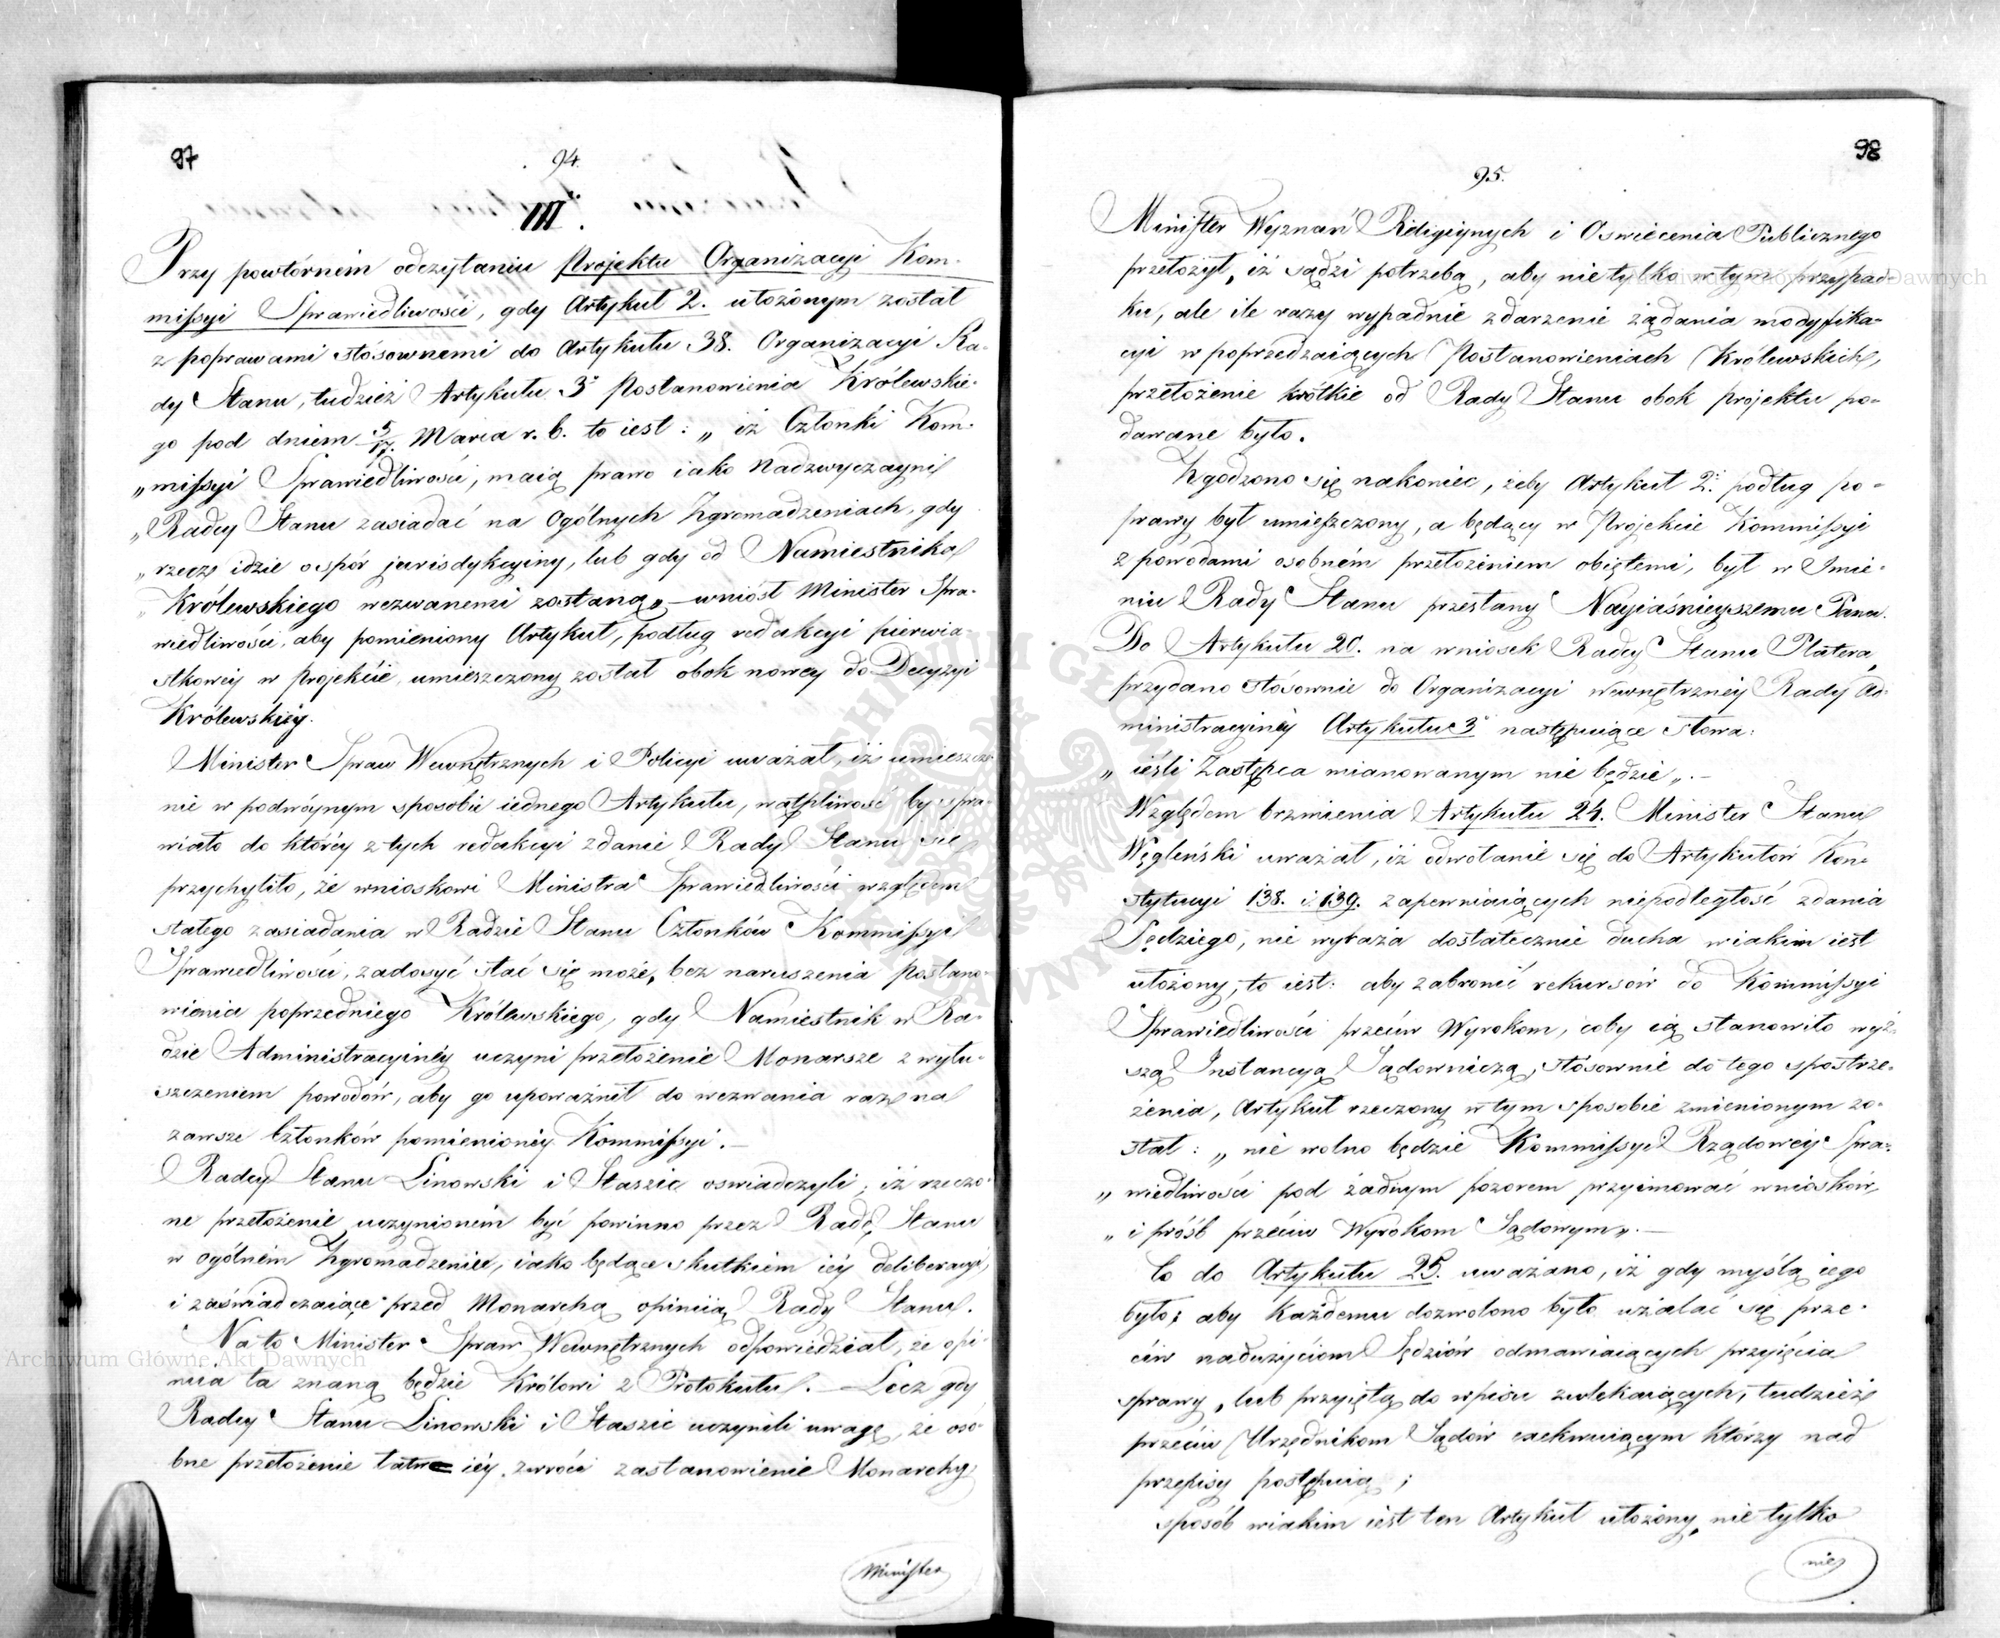 97
94.
III.
Przy powtórném odczytaniu Projektu Organizacyi Kom-
missyi Sprawiedliwości, gdy Artykuł 2. ułożonym został
z poprawami stósownemi do Artykułu 38. Organizacyi Ra-
dy Stanu, tudzież Artykułu 3° Postanowienia Królewskie-
go pod dniem 5/17. Marca r. b. to iest: „ iż Członki Kom-
„missyi Sprawiedliwości, maią prawo iako Nadzwyczayni
„Radcy Stanu zasiadać na Ogólnych Zgromadzeniach, gdy
„rzecz idzie o spór jurisdykcyiny, lub gdy od Namiestnika
„Królewskiego wezwanemi zostaną„ – wniósł Minister Spra-
wiedliwości, aby pomieniony Artykuł, podług redakcyi pierwia-
stkowéy w projekcie, umieszczony został obok nowéy do Decyzyi
Królewskiéy.
Minister Spraw Wewnętrznych i Policyi uważał, iż umieszcze-
nie w podwóynym sposobie iednego Artykułu, wątpliwość by spra-
wiało do któréy z tych redakcyi zdanie Rady Stanu się
przychyliło, że wnioskowi Ministra Sprawiedliwości względem
stałego zasiadania w Radzie Stanu Członków Kommissyi
Sprawiedliwości, zadosyć stać się może, bez naruszenia postano-
wienia poprzedniego Królewskiego, gdy Namiestnik w Ra-
dzie Administracyinéy uczyni przełożenie Monarsze z wyłu-
szczeniem powodów, aby go upoważnił do wezwania raz na
zawsze Członków pomienionéy Kommissyi. –
Radcy Stanu Linowski i Staszic oswiadczyli, iż rzeczo-
ne przełożenie uczynioném być powinno przez Radę Stanu
w ogólném Zgromadzeniu, iako będące skutkiem iéy deliberacyi,
i zaświadczaiące przed Monarchą opiniią Rady Stanu.
Na to Minister Spraw Wewnętrznych odpowiedział, że opi-
niia ta znaną będzie Królowi z Protokułu. – Lecz gdy
Radcy Stanu Linowski i Staszic uczynili uwagę, że osó-
bne przełożenie iéy zwróci zastanowienie Monarchy,
Minister
98
95.
Minister Wyznań Religiynych i Oswiecenia Publicznego
przełożył, iż sądzi potrzebą, aby nietylko w tym przypad-
ku, ale ile razy wypadnie zdarzenie żądania modyfika-
cyi w poprzedzaiących Postanowieniach Królewskich,
przełożenie krótkie od Rady Stanu obok projektu po-
dawane było.
Zgodzono się nakoniec, żeby Artykuł 2i. podług po-
prawy był umieszczony, a będący w Projekcie Kommissyi
z powodami osobném przełożeniem obiętemi, był w Imie-
niu Rady Stanu przesłany Nayiaśnieyszemu Panu.
Do Artykułu 20. na wniosek Radcy Stanu Platera,
przydano stósownie do Organizacyi wewnętrznéy Rady Ad-
ministracyinéy Artykułu 3° następuiące słowa:
„ ieśli Zastępca mianowanym nie będzie „. –
Względem brzmienia Artykułu 24. Minister Stanu
Węgleński uważał, iż odwołanie się do Artykułów Kon-
stytucyi 138. i 139. zapewniaiących niepodległość zdania
Sędziego, nie wyraża dostatecznie ducha w iakim iest
ułożony, to iest: aby zabronić rekursów do Kommissyi
Sprawiedliwości przeciw Wyrokom, coby ią stanowiło wyż-
szą Instancyą Sądowniczą, stósownie do tego spostrze-
żenia, Artykuł rzeczony w tym sposobie zmienionym zo-
stał: „ nie wolno będzie Kommissyi Rządowéy Spra-
„ wiedliwości pod żadnym pozorem przyimować wniosków,
„ i próśb przeciw Wyrokom Sądowym„. –
Co do Artykułu 25. uważano, iż gdy myślą iego
było, aby Każdemu dozwolono było użalać się prze-
ciw nadużyciom Sędziów odmawiaiących przyięcia
sprawy, lub przyiętą do wpisu zwlekaiących, tudzież
przeciw Urzędnikom Sądów exekwuiącym którzy nad
przepisy postępuią;
sposób w iakim iest ten Artykuł ułożony, nie tylko
nie